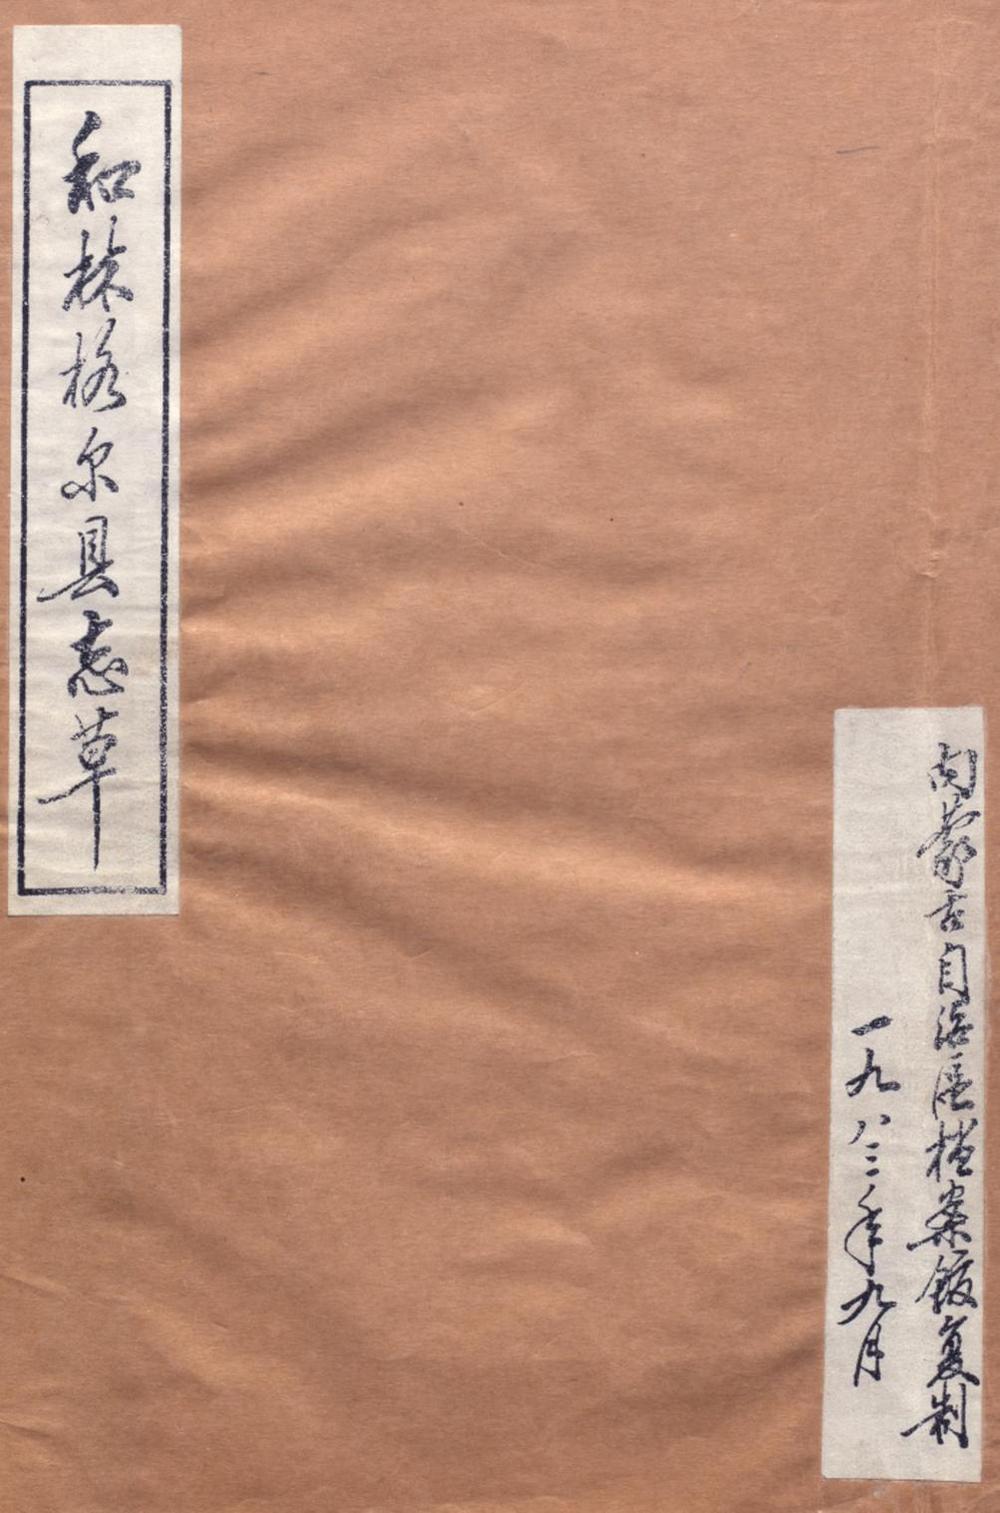 和林格尔县志草
内蒙古自治区档案馆复制
一九八三年九月